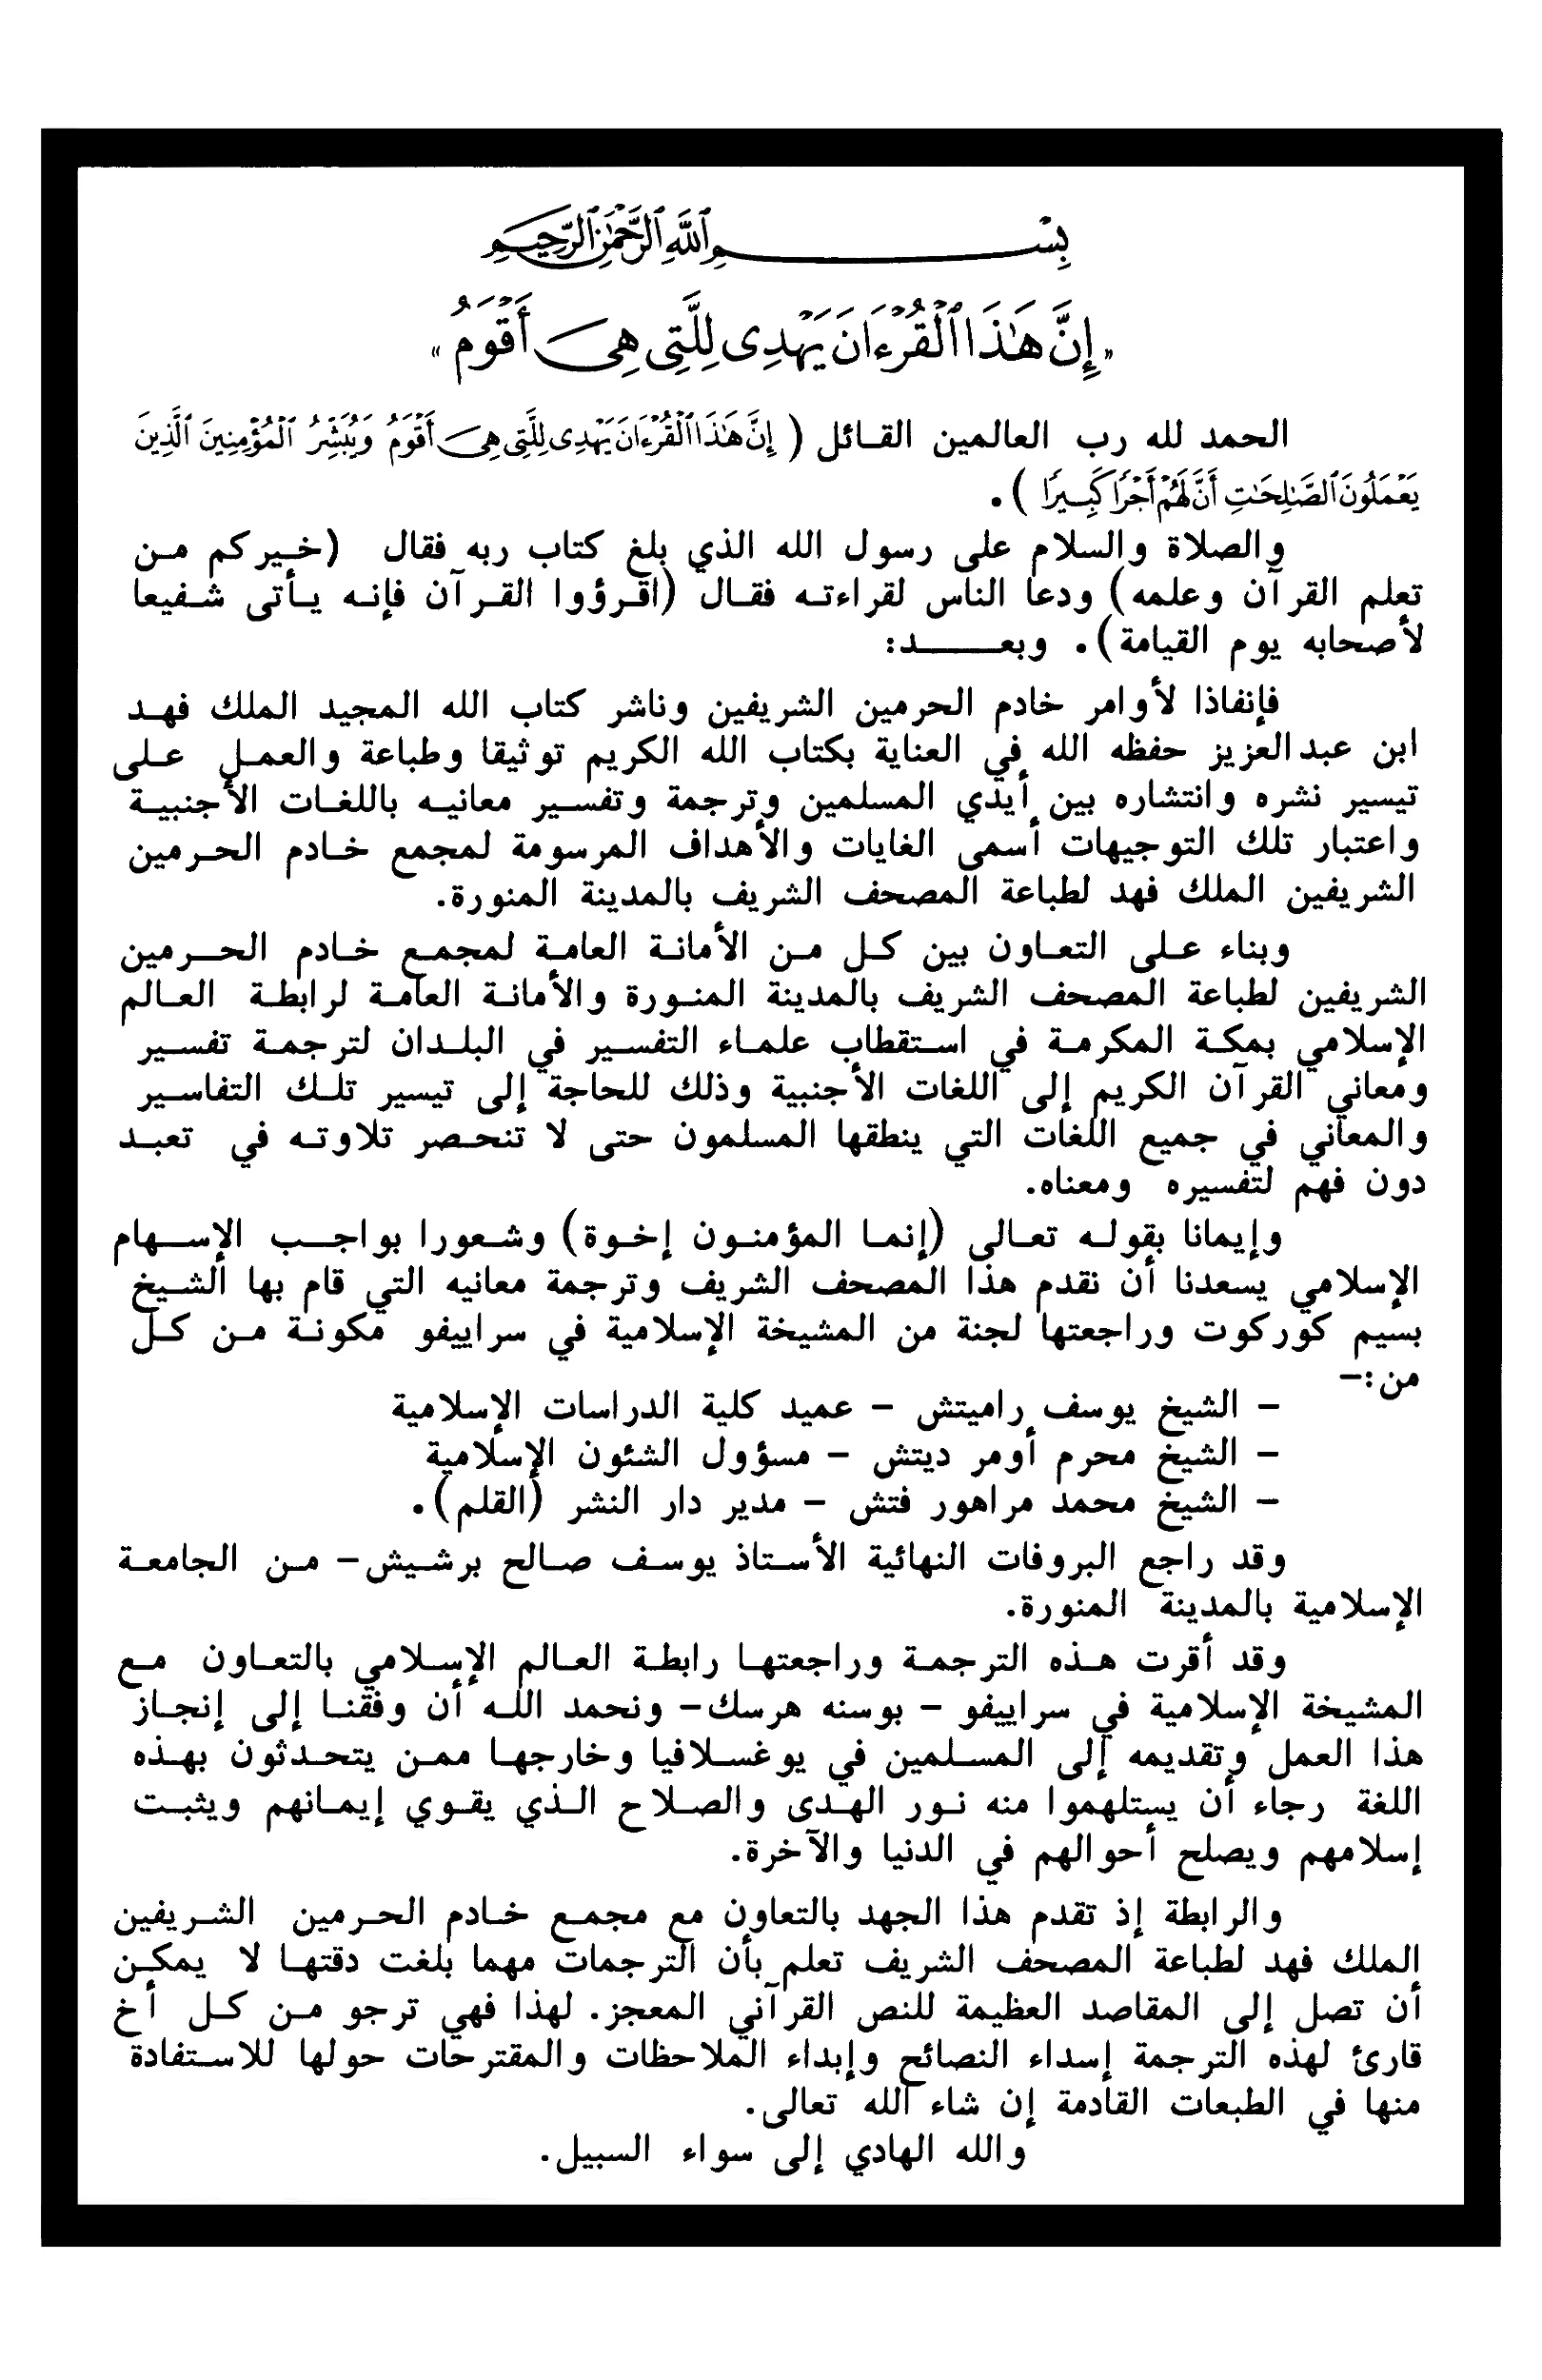 بِسْمِ ٱللَّهِ ٱلرَّحْمَٰنِ ٱلرَّحِيمِ
«إِنَّ هَٰذَا ٱلْقُرْءَانَ يَهْدِى لِلَّتِى هِىَ أَقْوَمُ»
الحمد لله رب العالمين القائل ( إِنَّ هَٰذَا ٱلْقُرْءَانَ يَهْدِى لِلَّتِى هِىَ أَقْوَمُ وَيُبَشِّرُ ٱلْمُؤْمِنِينَ ٱلَّذِينَ
يَعْمَلُونَ ٱلصَّٰلِحَٰتِ أَنَّ لَهُمْ أَجْرًا كَبِيرًا ).
والصلاة والسلام على رسول الله الذي بلغ كتاب ربه فقال (خيركم من
تعلم القرآن وعلمه) ودعا الناس لقراءته فقال (اقرؤوا القرآن فإنه يأتى شفيعا
لأصحابه يوم القيامة). وبعد:
فإنفاذا لأوامر خادم الحرمين الشريفين وناشر كتاب الله المجيد الملك فهد
ابن عبدالعزيز حفظه الله في العناية بكتاب الله الكريم توثيقا وطباعة والعمل على
تيسير نشره وانتشاره بين أيدي المسلمين وترجمة وتفسير معانيه باللغات الأجنبية
واعتبار تلك التوجيهات أسمى الغايات والأهداف المرسومة لمجمع خادم الحرمين
الشريفين الملك فهد لطباعة المصحف الشريف بالمدينة المنورة.
وبناء على التعاون بين كل من الأمانة العامة لمجمع خادم الحرمين
الشريفين لطباعة المصحف الشريف بالمدينة المنورة والأمانة العامة لرابطة العالم
الإسلامي بمكة المكرمة في استقطاب علماء التفسير في البلدان لترجمة تفسير
ومعاني القرآن الكريم إلى اللغات الأجنبية وذلك للحاجة إلى تيسير تلك التفاسير
والمعاني في جميع اللغات التي ينطقها المسلمون حتى لا تنحصر تلاوته في تعبد
دون فهم لتفسيره ومعناه.
وإيمانا بقوله تعالى (إنما المؤمنون إخوة) وشعورا بواجب الإسهام
الإسلامي يسعدنا أن نقدم هذا المصحف الشريف وترجمة معانيه التي قام بها الشيخ
بسيم كوركوت وراجعتها لجنة من المشيخة الإسلامية في سراييفو مكونة من كل
من:–
– الشيخ يوسف راميتش – عميد كلية الدراسات الإسلامية
– الشيخ محرم أومر ديتش – مسؤول الشئون الإسلامية
– الشيخ محمد مراهور فتش – مدير دار النشر (القلم).
وقد راجع البروفات النهائية الأستاذ يوسف صالح برشيش– من الجامعة
الإسلامية بالمدينة المنورة.
وقد أقرت هذه الترجمة وراجعتها رابطة العالم الإسلامي بالتعاون مع
المشيخة الإسلامية في سراييفو – بوسنه هرسك– ونحمد الله أن وفقنا إلى إنجاز
هذا العمل وتقديمه إلى المسلمين في يوغسلافيا وخارجها ممن يتحدثون بهذه
اللغة رجاء أن يستلهموا منه نور الهدى والصلاح الذي يقوي إيمانهم ويثبت
إسلامهم ويصلح أحوالهم في الدنيا والآخرة.
والرابطة إذ تقدم هذا الجهد بالتعاون مع مجمع خادم الحرمين الشريفين
الملك فهد لطباعة المصحف الشريف تعلم بأن الترجمات مهما بلغت دقتها لا يمكن
أن تصل إلى المقاصد العظيمة للنص القرآني المعجز. لهذا فهي ترجو من كل أخ
قارئ لهذه الترجمة إسداء النصائح وإبداء الملاحظات والمقترحات حولها للاستفادة
منها في الطبعات القادمة إن شاء الله تعالى.
والله الهادي إلى سواء السبيل.